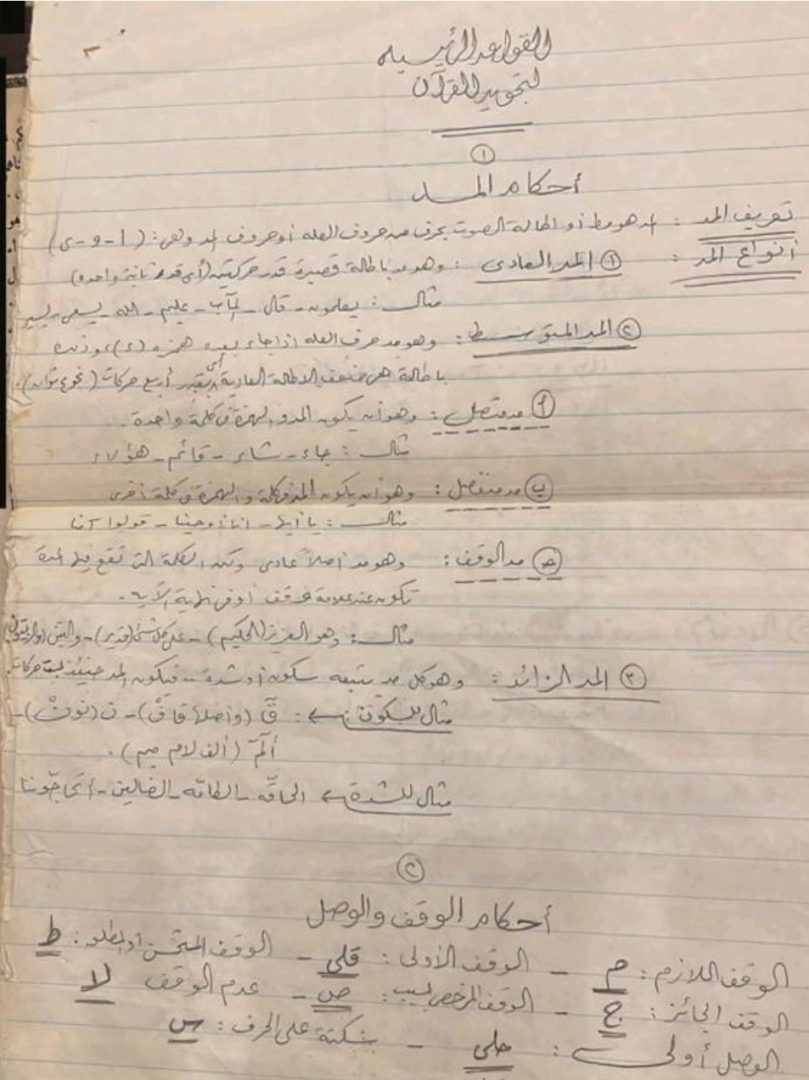 ٢
القواعد الرئيسية
لتجويد القرآن
١
أحكام المــد
تعريف المد : المد هو مط أو اطالة الصوت بحرف من حروف العله أو حروف المد وهى : ( ا - و - ى )
أنواع المد : ١ المد العادى : وهو مد باطالة قصيرة قدر حركتين (أى قدر ثانية واحده)
مثال : يعلمون - قال - المآب - عليم - الله - يسعى -
٢ المد المتوسط : وهو مد حرف العله اذا جاء بعده همزه (ء) وذلك
باطالة هى ضعف الاطالة العادية أى بقدر أربع حركات (نحو ثوانٍ).
أ مد متصل : وهو أن يكون المد والهمزة فى كلمة واحدة.
مثال : جاء - شاء - قائم - هؤلاء
ب مد منفصل : وهو أن يكون المد فى كلة والهمزة فى كلة أخرى
مثال : يا أيها - انا أوحينا - قولوا آمنا
ج مد الوقف : وهو مد أصلاً عادى ولكن الكلة التى تقع فيها المدة
تكون عند علامة وقف أو فى نهاية الآية.
مثال : وهو العزيز (الحكيم) - على كل شئ (قدير) - والتين (والزيتون)
٣ المد الزائد : وهو كل مد يتبعه سكون أو شدة .. فيكون المد حينئذ ستة حركات
مثال للسكون : ← قۤ (وأصلها قافْ) - ن (نونْ) -
ألمۤ (ألف لام ميم) .
مثال للشدة ← الحاقّه - الطامّه - الضالّين - أتحاجّوننا
٢
أحكام الوقف والوصل
الوقف اللازم : م - الوقف الأولى : قلى - الوقف المستحسن أو المطلق : ط
الوقف الجائز : ج - الوقف المرخص لسبب : ص - عدم الوقف لا
الوصل أولى : صلى - بسكتة على الحرف : س